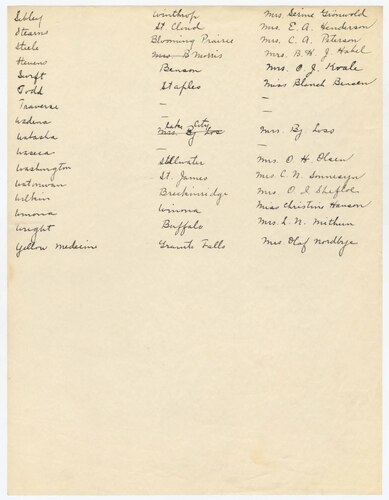 Sibley Winthrop Mrs Serine Gronwold
Stearns St. Cloud Mrs. E. A. Henderson
Steele Blooming Prairie Mrs. C. A. Peterson
Stevens Mrs. B Morris Mrs. B. H. J. Habel
Swift Benson Mrs. O. J. Kvale
Todd Staples Miss Blanch Bensen
Traverse — —
Wadena — —
Lake City
Wabasha Mrs. By Loss Mrs. By Loss
Waseca — —
Washington Stillwater Mrs. O. H. Olsen
Watonwan St. James Mrs C. N. Sonnesyn
Wilkin Breckinridge Mrs. O. I
Winona Winona Miss Christine Hanson
Wright Buffalo Mrs. L. N. Mithun
Yellow Medicin Granite Falls Mrs Olaf Nordbye